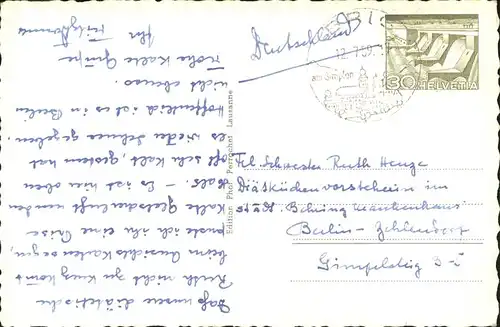 Daß unsere diätetische
Ruth nicht zu kurz kommt
beim Ansichtskartensegen,
puste ich ihr eine Prise
kalte Gletscherluft runter
Es ist hier oben
oft sehr kalt, gestern hat
es wieder Schnee gegeben.
Hoffentlich ist es in Berlin
nicht ebenso.
Frohe kalte Grüße
Ihr
Edition Phot Perrochet Lausanne
Deutschland
12.7.59
am Simplon
30 HELVETIA
Frl. Schwester Ruth Henze
Diätküchenvorsteherin im
städt. Behring Krankenhaus
Berlin-Zehlendorf
Gimpelsteig 3-5